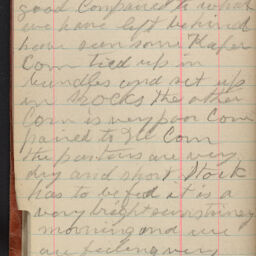 good compared to what
we have left behind
have seen some Kafer
Corn tied up in
bundles and set up
in shocks the other
Corn is very poor Com
pared to Ill Corn
the pastures are very
dry and short Stock
has to be fed it is a
very bright sunshiney
morning and we
are feeling very